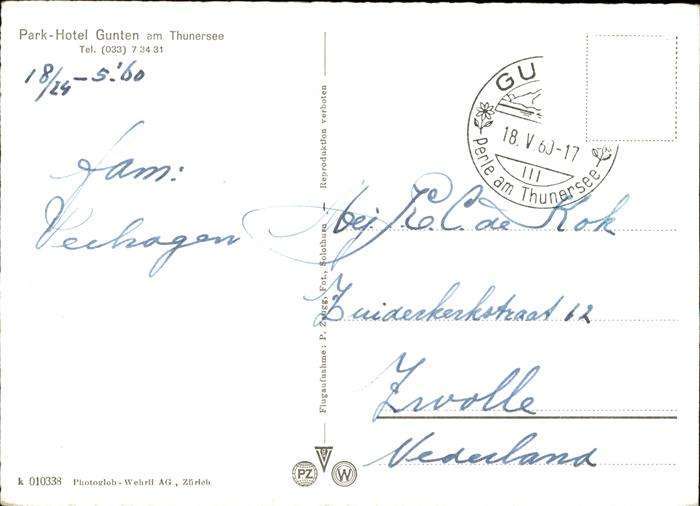 Park-Hotel Gunten am Thunersee
Tel. (033) 7 34 31
18/24 - 5.'60
Fam:
Verhagen
Flugaufnahme: P. Zaugg, Fot., Solothurn — Reproduktion verboten
GU
18. V. 60-17
III
Perle am Thunersee
bij K. C. de Kok
Zuiderkerkstraat 12
Zwolle
Nederland
k 010338 Photoglob-Wehrli AG., Zürich
PZ
W